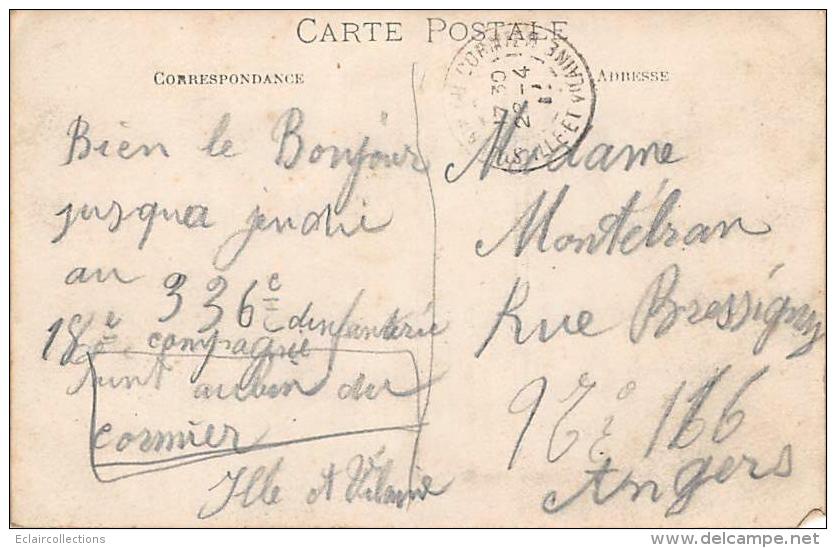 CARTE POSTALE
CORRESPONDANCE
ADRESSE
Bien le Bonjour
jusqua jeudi
au 336e
dinfanterie
18e compagnie
Saint aubin du
cormier
Ille et Vilaine
Madame
Montélran
Rue Bressigny
116
Angers
CORMIER
ILLE-ET-VILAINE
7 30
28-4
Eclaircollections
www.delcampe.net